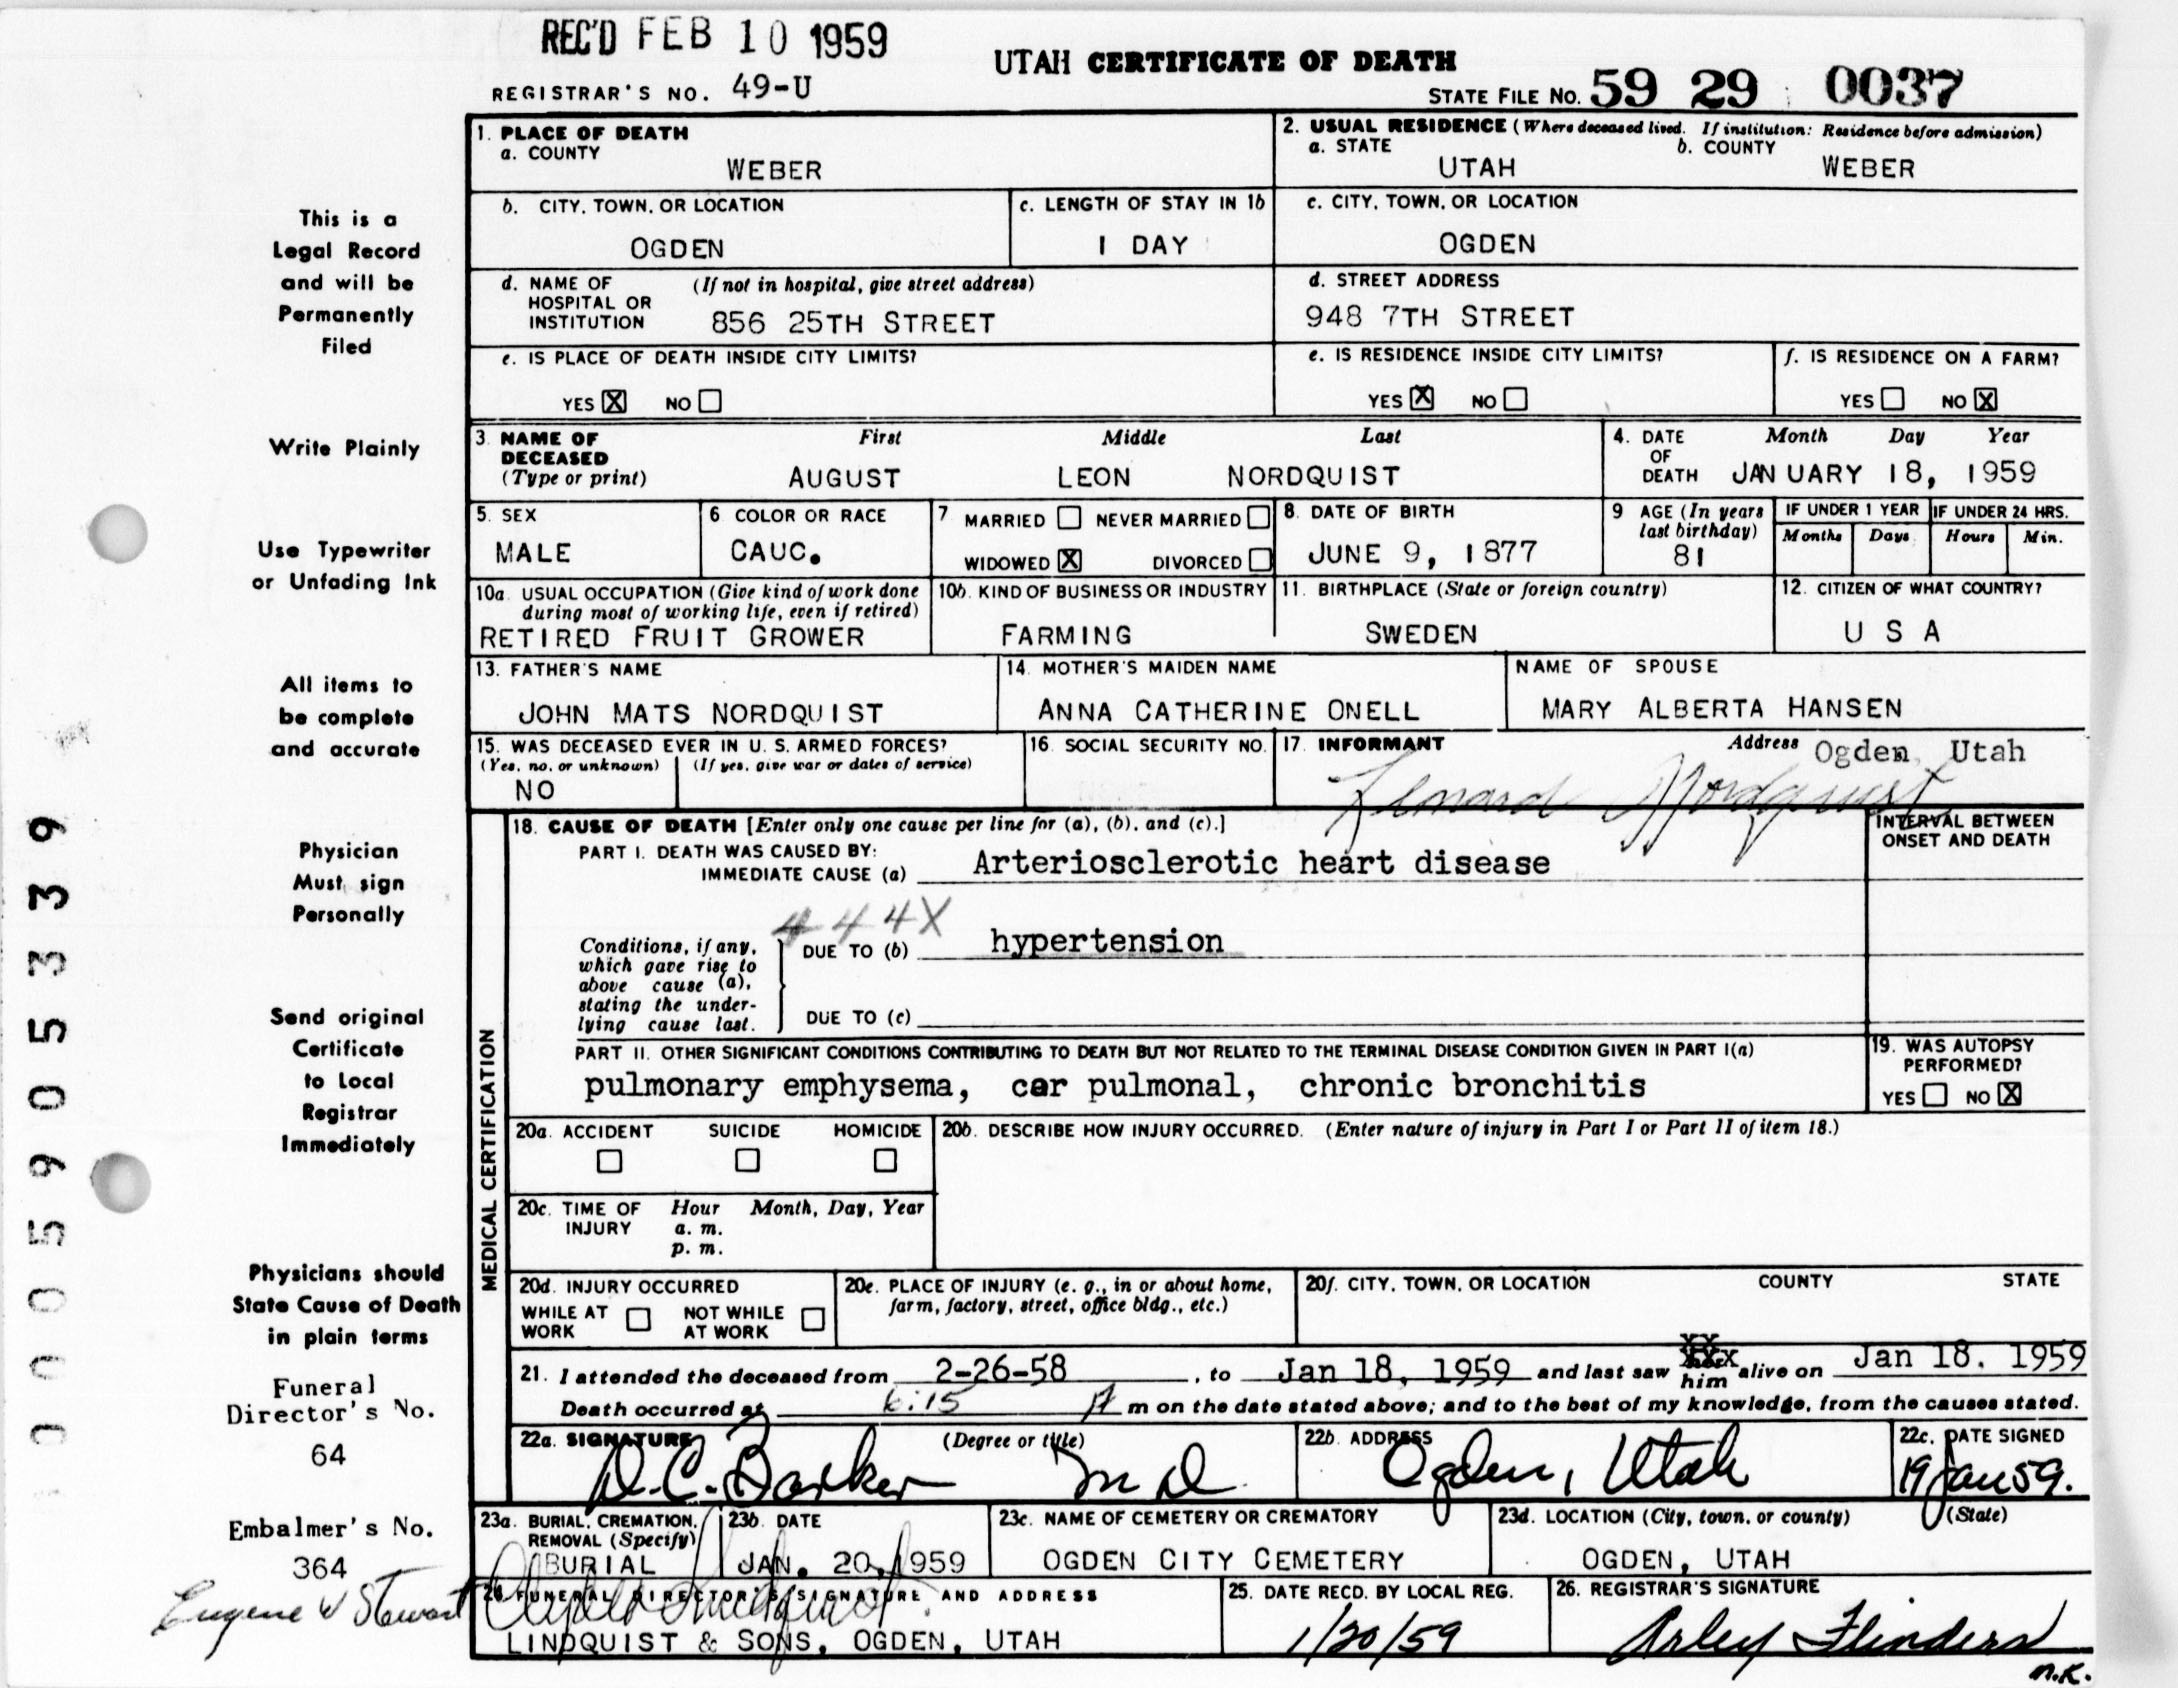 REC'D FEB 10 1959
UTAH CERTIFICATE OF DEATH
REGISTRAR'S NO. 49-U
STATE FILE NO. 59 29 0037
1. PLACE OF DEATH
a. COUNTY
WEBER
2. USUAL RESIDENCE (Where deceased lived. If institution: Residence before admission)
a. STATE
UTAH
b. COUNTY
WEBER
b. CITY, TOWN, OR LOCATION
OGDEN
c. LENGTH OF STAY IN 1b
1 DAY
c. CITY, TOWN, OR LOCATION
OGDEN
d. NAME OF HOSPITAL OR INSTITUTION
(If not in hospital, give street address)
856 25TH STREET
d. STREET ADDRESS
948 7TH STREET
e. IS PLACE OF DEATH INSIDE CITY LIMITS?
YES X NO
e. IS RESIDENCE INSIDE CITY LIMITS?
YES X NO
f. IS RESIDENCE ON A FARM?
YES NO X
3. NAME OF DECEASED
(Type or print)
First Middle Last
AUGUST LEON NORDQUIST
4. DATE OF DEATH
Month Day Year
JANUARY 18, 1959
5. SEX
MALE
6. COLOR OR RACE
CAUC.
7. MARRIED NEVER MARRIED
WIDOWED X DIVORCED
8. DATE OF BIRTH
JUNE 9, 1877
9. AGE (In years last birthday)
81
IF UNDER 1 YEAR
Months Days
IF UNDER 24 HRS.
Hours Min.
10a. USUAL OCCUPATION (Give kind of work done during most of working life, even if retired)
RETIRED FRUIT GROWER
10b. KIND OF BUSINESS OR INDUSTRY
FARMING
11. BIRTHPLACE (State or foreign country)
SWEDEN
12. CITIZEN OF WHAT COUNTRY?
U S A
13. FATHER'S NAME
JOHN MATS NORDQUIST
14. MOTHER'S MAIDEN NAME
ANNA CATHERINE ONELL
NAME OF SPOUSE
MARY ALBERTA HANSEN
15. WAS DECEASED EVER IN U. S. ARMED FORCES?
(Yes, no, or unknown) (If yes, give war or dates of service)
NO
16. SOCIAL SECURITY NO.
17. INFORMANT Address
Ogden, Utah
Nordquist
18. CAUSE OF DEATH [Enter only one cause per line for (a), (b), and (c).]
INTERVAL BETWEEN ONSET AND DEATH
PART I. DEATH WAS CAUSED BY:
IMMEDIATE CAUSE (a) Arteriosclerotic heart disease
444X
Conditions, if any, which gave rise to above cause (a), stating the underlying cause last.
DUE TO (b) hypertension
DUE TO (c)
PART II. OTHER SIGNIFICANT CONDITIONS CONTRIBUTING TO DEATH BUT NOT RELATED TO THE TERMINAL DISEASE CONDITION GIVEN IN PART I(a)
pulmonary emphysema, cor pulmonal, chronic bronchitis
19. WAS AUTOPSY PERFORMED?
YES NO X
20a. ACCIDENT SUICIDE HOMICIDE
20b. DESCRIBE HOW INJURY OCCURRED. (Enter nature of injury in Part I or Part II of item 18.)
20c. TIME OF INJURY
Hour Month, Day, Year
a. m.
p. m.
20d. INJURY OCCURRED
WHILE AT WORK NOT WHILE AT WORK
20e. PLACE OF INJURY (e. g., in or about home, farm, factory, street, office bldg., etc.)
20f. CITY, TOWN, OR LOCATION COUNTY STATE
21. I attended the deceased from 2-26-58, to Jan 18, 1959 and last saw him alive on Jan 18, 1959
Death occurred at 6:15 A m on the date stated above; and to the best of my knowledge, from the causes stated.
22a. SIGNATURE (Degree or title)
D. C. Barker M D
22b. ADDRESS
Ogden, Utah
22c. DATE SIGNED
19 Jan 59.
MEDICAL CERTIFICATION
23a. BURIAL, CREMATION, REMOVAL (Specify)
BURIAL
23b. DATE
JAN. 20, 1959
23c. NAME OF CEMETERY OR CREMATORY
OGDEN CITY CEMETERY
23d. LOCATION (City, town, or county) (State)
OGDEN, UTAH
24. FUNERAL DIRECTOR'S SIGNATURE AND ADDRESS
LINDQUIST & SONS, OGDEN, UTAH
25. DATE RECD. BY LOCAL REG.
1/20/59
26. REGISTRAR'S SIGNATURE
Arley Flinders
n.K.
This is a
Legal Record
and will be
Permanently
Filed
Write Plainly
Use Typewriter
or Unfading Ink
All items to
be complete
and accurate
Physician
Must sign
Personally
Send original
Certificate
to Local
Registrar
Immediately
Physicians should
State Cause of Death
in plain terms
Funeral
Director's No.
64
Embalmer's No.
364
Eugene W Stewart
0005905339